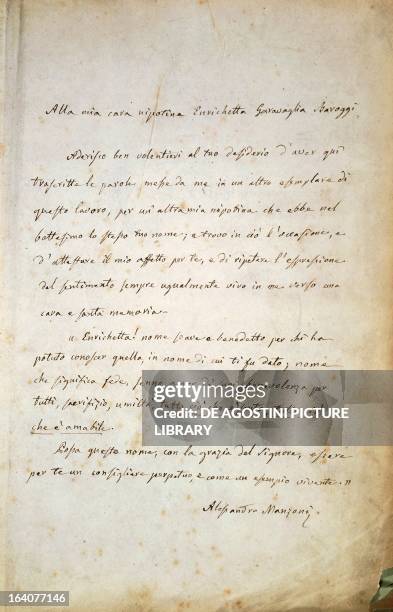 Alla mia cara nipotina Enrichetta Garavaglia Baroggi.
Aderisco ben volentieri al tuo desiderio d'aver qui
trascritte le parole messe da me in un altro esemplare di
questo lavoro, per un'altra mia nipotina che ebbe nel
battesimo lo stesso tuo nome; e trovo in ciò l'occasione, e
d'attestare il mio affetto per te, e di ripetere l'espressione
del sentimento sempre ugualmente vivo in me verso una
cara e santa memoria.
" Enrichetta! nome soave e benedetto per chi ha
potuto conoscer quella, in nome di cui ti fu dato; nome
che significa fede, senno
tutti, sacrifizio, umiltà
che è amabile.
Possa questo nome, con la grazia del Signore, essere
per te un consigliere perpetuo, e come un esempio vivente. "
Alessandro Manzoni.
gettyimages
DE AGOSTINI PICTURE
LIBRARY
164077146